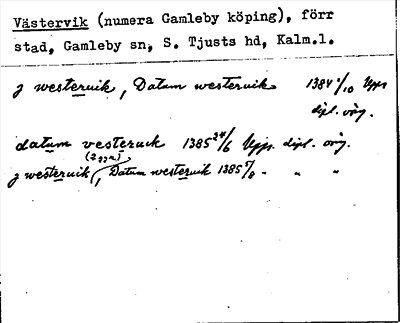 Västervik (numera Gamleby köping), förr
stad, Gamleby sn, S. Tjusts hd, Kalm.l.
j westeruik, Datum westeruik 1384 /10 Upps
dipl. orig.
datum vesteruik 1385 24/6 Upps. dipl. orig.
(2 ggr)
j westeruik, Datum westeruik 1385 /8 - " "